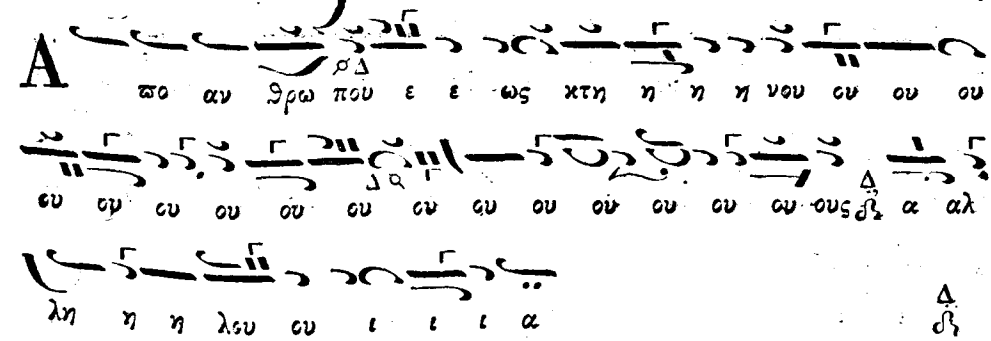 Α πο αν θρω που ε ε ως κτη η η η νου ου ου ου
ου ου ου ου ου ου ου ου ου ου ου ου ου ους α αλ
λη η η λου ου ι ι ι α